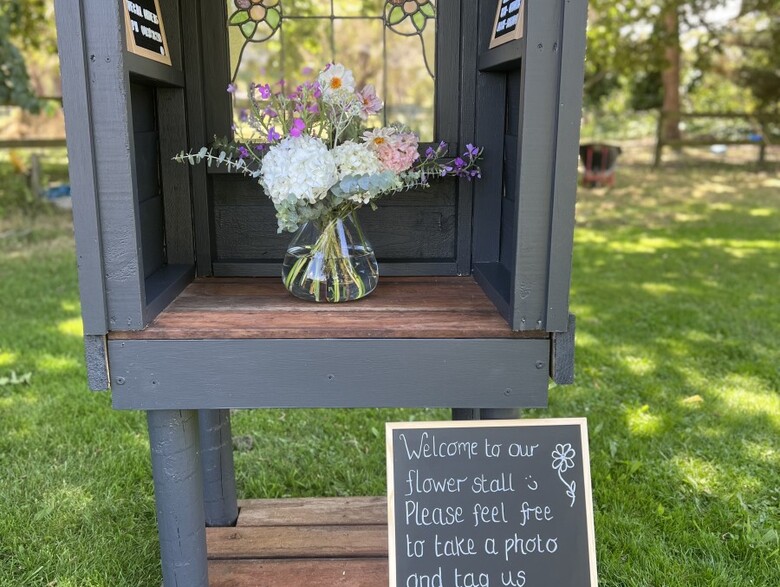 Welcome to our
flower stall
Please feel free
to take a photo
and tag us